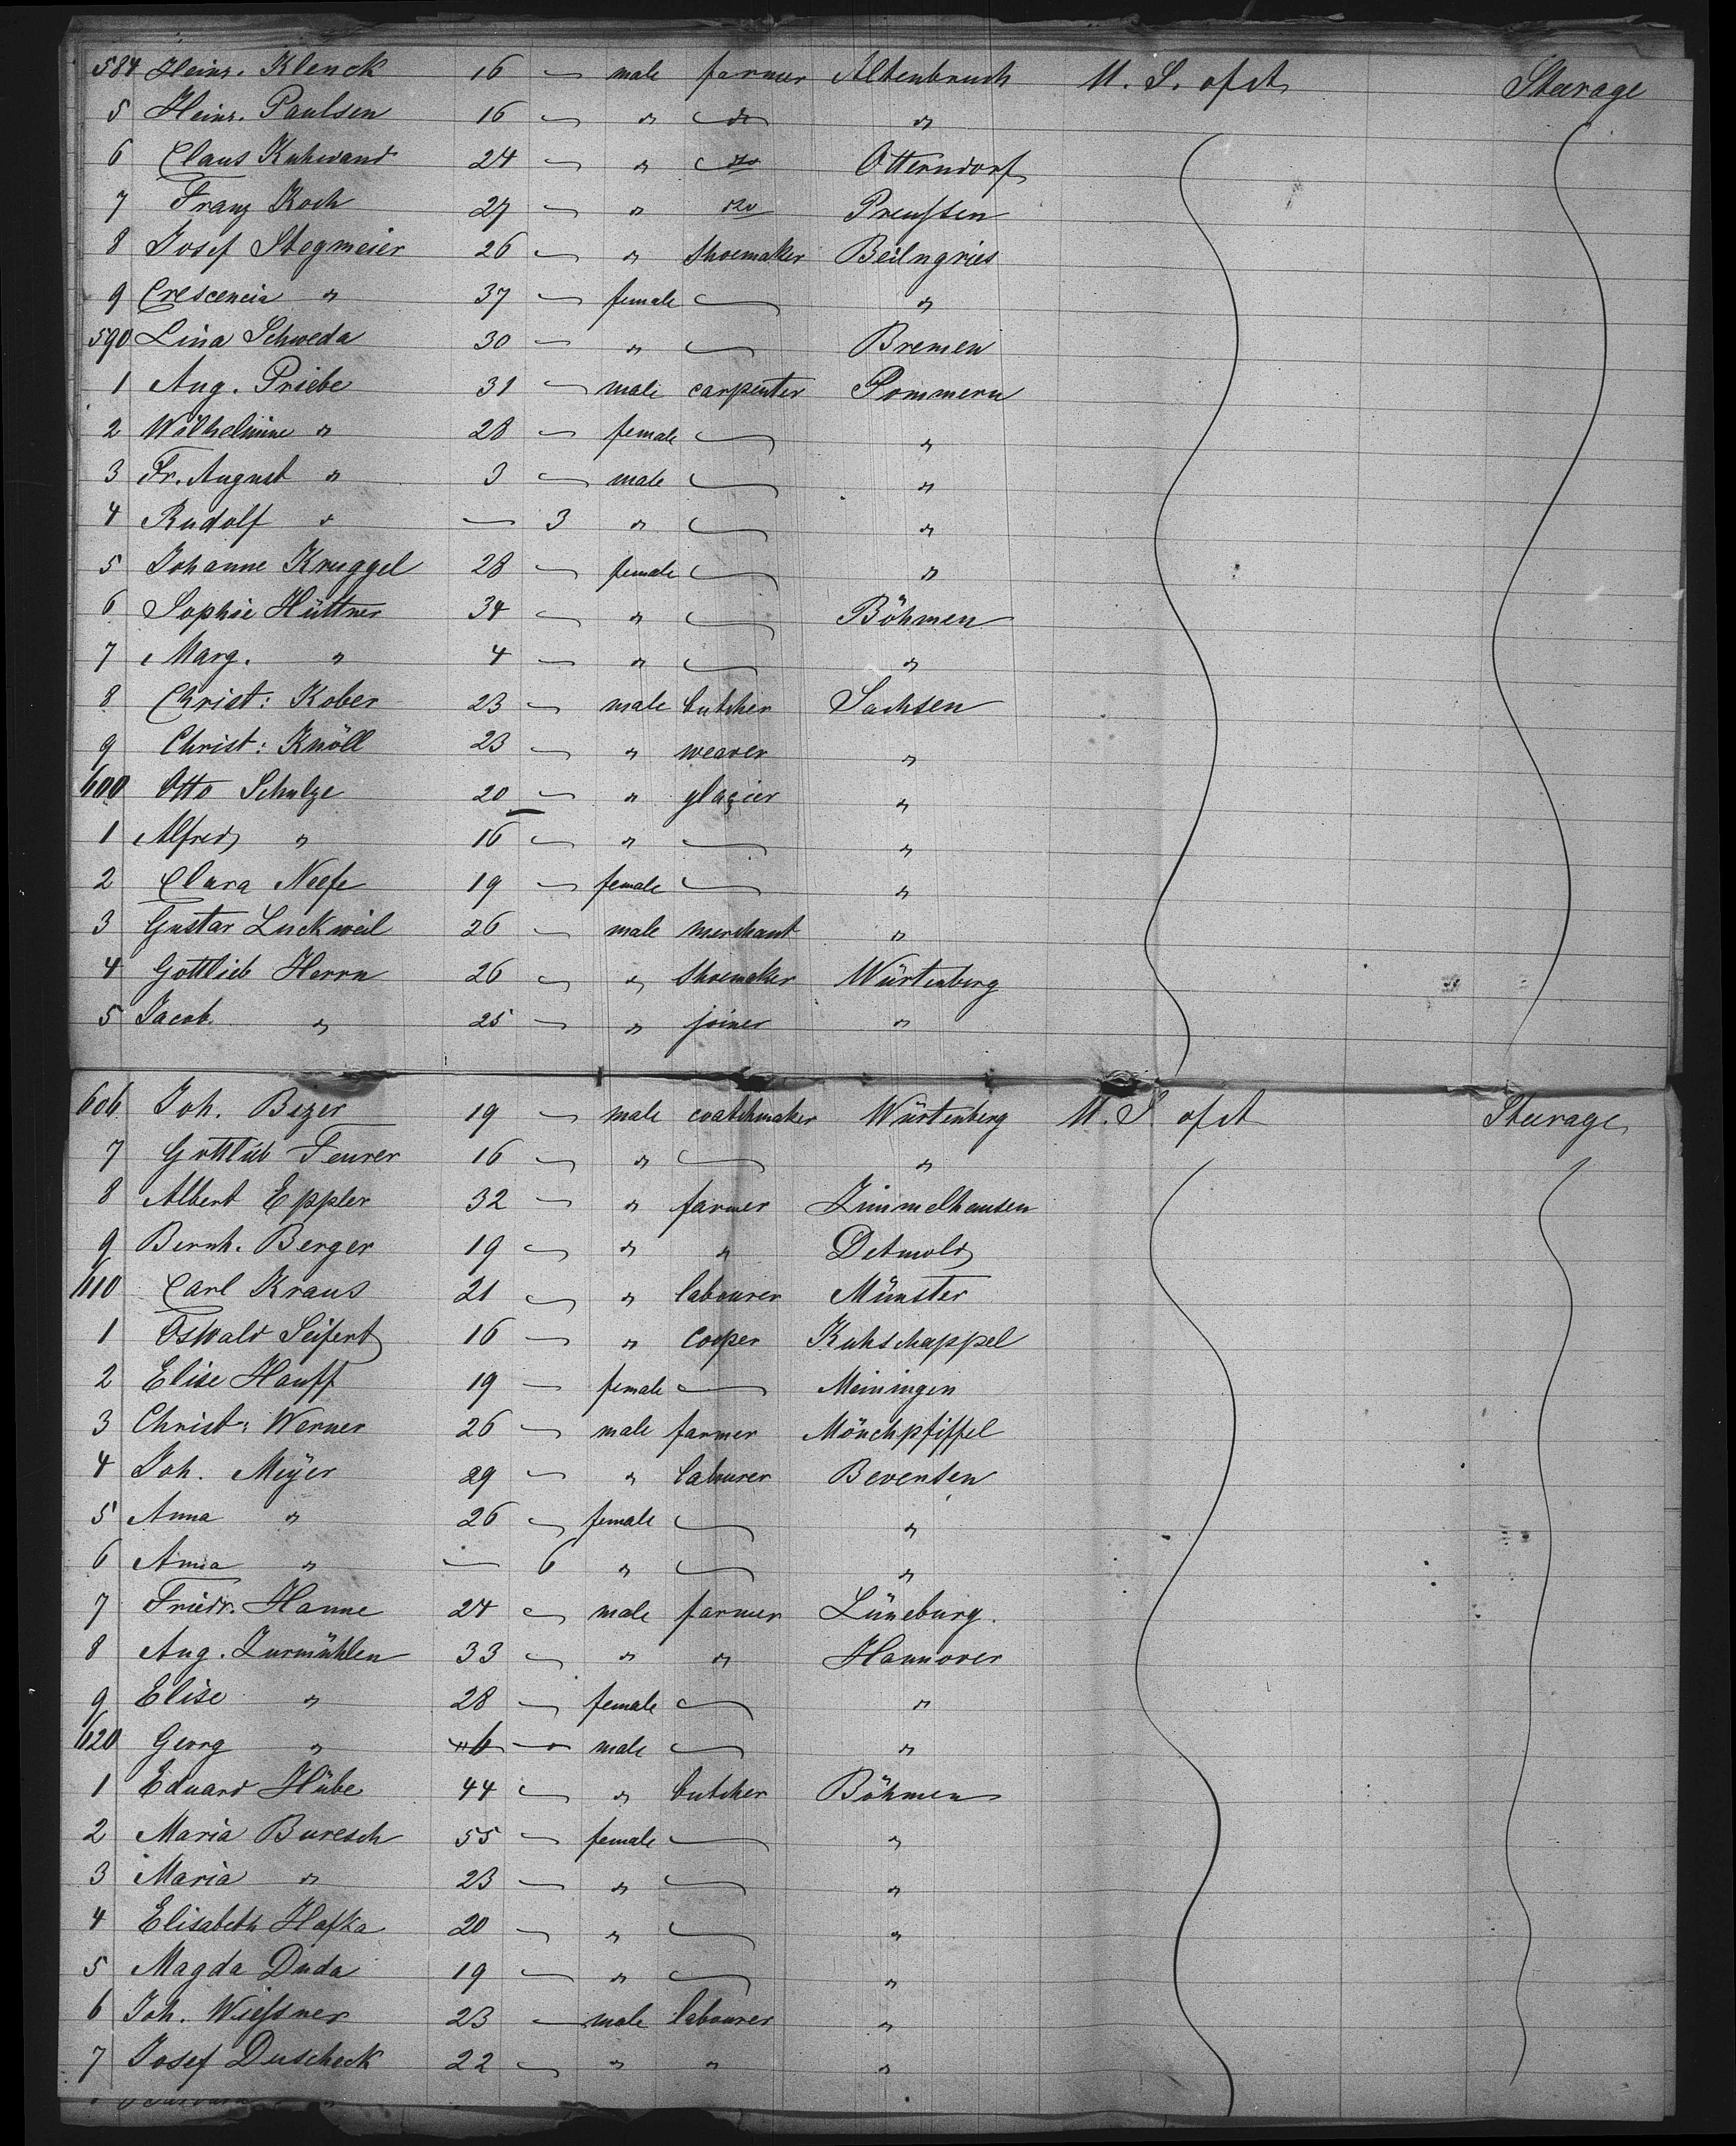 584 Heinr. Klenck 16 — male farmer Altenbruch U. S. of A. Steerage
5 Heinr. Paulsen 16 — " do "
6 Claus Kuhwand 24 — " do Otterndorf
7 Franz Koch 27 — " do Preußen
8 Josef Stegmeier 26 — " shoemaker Beilngries
9 Crescencia " 37 — female — "
590 Lina Schweda 30 — " — Bremen
1 Aug. Priebe 31 — male carpenter Pommern
2 Wilhelmine " 28 — female — "
3 Fr. August " 3 — male — "
4 Rudolf " — 3 " — "
5 Johanne Kruggel 28 — female — "
6 Sophie Hüttner 34 — " — Böhmen
7 Marg. " 4 — " — "
8 Christ: Kober 23 — male butcher Sachsen
9 Christ: Knöll 23 — " weaver "
600 Otto Schulze 20 — " glazier "
1 Alfred " 16 — " — "
2 Clara Neefe 19 — female — "
3 Gustav Luckweil 26 — male merchant "
4 Gottlieb Herrn 26 — " shoemaker Würtenberg
5 Jacob " 25 — " joiner "
606 Joh. Bizer 19 — male coatchmaker Würtenberg U. S. of A Steerage
7 Gottlieb Feurer 16 — " — "
8 Albert Eppler 32 — " farmer Zimmelhausen
9 Bernh. Berger 19 — " " Detmold
610 Carl Kraus 21 — " labourer Münster
1 Oswald Seifert 16 — " cooper Kuhschappel
2 Elise Hauff 19 — female — Meiningen
3 Christ: Werner 26 — male farmer Mönchpfiffel
4 Joh. Meÿer 29 — " labourer Bevensen
5 Anna " 26 — female — "
6 Anna " — 6 " — "
7 Friedr. Hanne 24 — male farmer Lüneburg.
8 Aug. Zurmühlen 33 — " " Hannover
9 Elise " 28 — female — "
620 Georg " 6 — male — "
1 Eduard Hübe 44 — " butcher Böhmen
2 Maria Buresch 55 — female — "
3 Maria " 23 — " — "
4 Elisabeth Hafka 20 — " — "
5 Magda Duda 19 — " — "
6 Joh. Wießner 23 — male labourer "
7 Josef Duscheck 22 — " " "